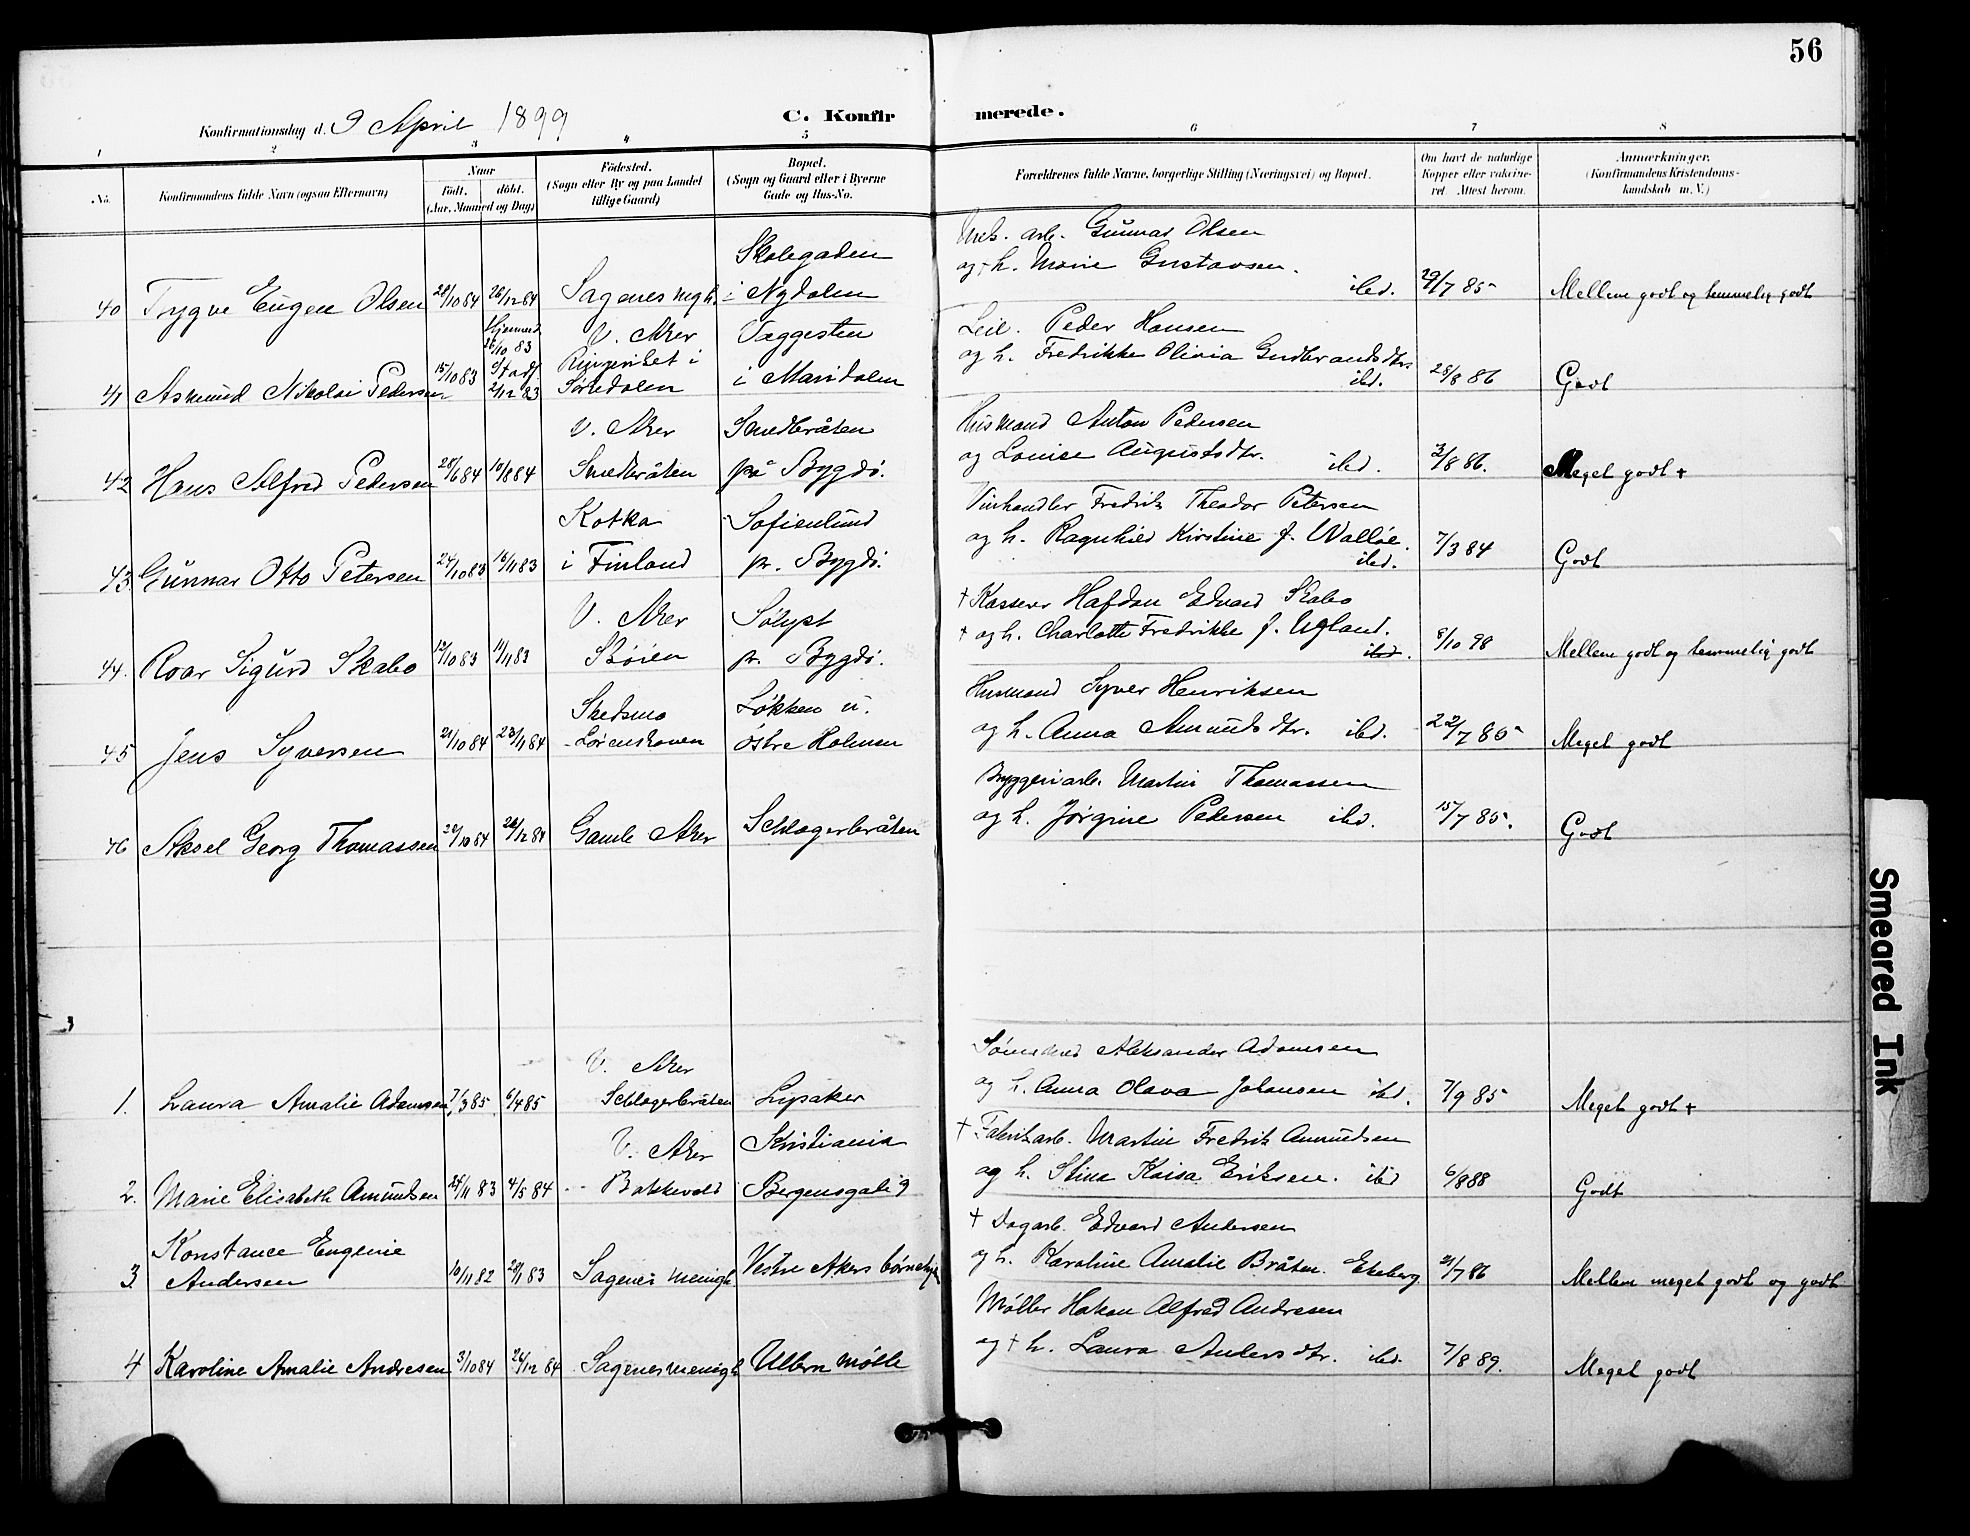 56
Konfirmationsdag d. 9 April 1899
C. Konfirmerede.
1 2 3 4 5 6 7 8
No.
Konfirmandens fulde Navn (ogsaa Efternavn)
Naar
Födt. döbt.
(Aar, Maaned og Dag)
Födested.
(Sogn eller By og paa Landet
tillige Gaard)
Bopæl.
(Sogn og Gaard eller i Byerne
Gade og Hus-No.
Forældrenes fulde Navne, borgerlige Stilling (Næringsvei) og Bopæl.
Om havt de naturlige
Kopper eller vaksine-
ret Attest herom.
Anmærkninger.
(Konfirmandens Kristendoms-
kundskab m. V.)
Skolegaden
Mek. arb. Gunnar Olsen
og + h. Marie Gustavsen.
40 Trygve Eugen Olsen 28/10 84 26/12 84 Sagenes mgh. i Nydalen ibd. 29/7 85 Mellem godt og temmelig godt
Hjemmed. 26/10 83 V. Aker Vaggesten
Leil. Peder Hansen
Stadf. Ringeriket i
og h. Fredrikke Olivia Gudbrandsdtr.
41 Asmund Nikolai Pedersen 15/10 83 2/12 83 Sørkedalen i Maridalen ibd. 28/8 86 Godt
V. Aker Smedbråten
Husmand Anton Pedersen
42 Hans Alfred Pedersen 28/6 84 10/8 84 Smedbråten på Bygdö. og Louise Augustsdtr. ibd. 2/8 86. Meget godt +
Kotka Sofienlund
Vinhandler Fredrik Theodor Petersen
43 Gunnar Otto Petersen 24/10 83 18/11 83 i Finland pr. Bygdö. og h. Ragnhild Kirstine f. Walløe. ibd. 7/3 84 Godt
V. Aker Sølyst
+ Kasserer Hafdan Edvard Skabo
44. Roar Sigurd Skabo 12/10 83 11/11 83 Skøien pr. Bygdö. + og h. Charlotte Fredrikke f. Ugland. ibd. 8/10 98 Mellem godt og temmelig godt
Skedsmo Løkken u.
Husmand Syver Henriksen
45 Jens Syversen 21/10 84 23/11 84 Lørenskoven østre Holmen og h. Anna Amundsdtr. ibd. 22/7 85 Meget godt
Bryggeriarb. Martin Thomassen
46 Aksel Georg Thomassen 22/10 84 26/12 84 Gamle Aker Schlagerbråten og h. Jørgine Pedersen ibd. 15/7 85. Godt
V. Aker
Aleksander Adamsen
1. Laura Amalie Adamsen 7/3 85 6/4 85 Schlagerbråten Lysaker og h. Anna Olava Johansen ibd. 7/9 85 Meget godt +
V. Aker Kristiania
+ Fabrikarb. Martin Fredrik Amundsen
2. Marie Elisabeth Amundsen 24/11 83 4/5 84 Bakkevold Bergensgade 9 og h. Stina Kaisa Eriksen. ibd 6/8 88 Godt
+ Dagarb. Edvard Andersen
Konstance Eugenie
3 Andersen 10/11 82 28/1 83 Sagenes menigh. Vestre Akers og h. Karoline Amalie Bråten. Ekeberg 21/7 86 Mellem meget godt og godt
Møller Hakon Alfred Andresen
4 Karoline Amalie Andresen 3/10 84 26/12 84 Sagenes menigh. Ullern mølle og + h. Laura Andersdtr. ibd. 7/8 89. Meget godt
Smeared Ink